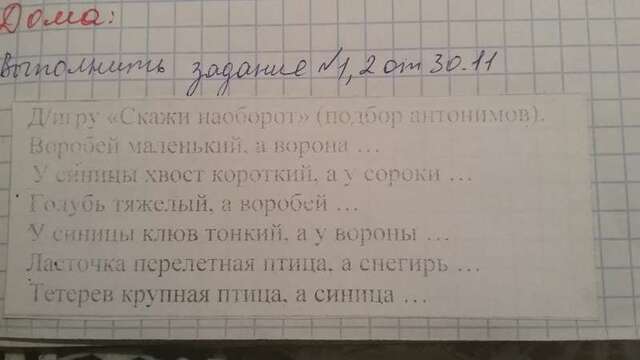 Дома:
Выполнить задание №1,2 от 30.11
Д/игру «Скажи наоборот» (подбор антонимов).
Воробей маленький, а ворона …
У синицы хвост короткий, а у сороки …
Голубь тяжелый, а воробей …
У синицы клюв тонкий, а у вороны …
Ласточка перелетная птица, а снегирь …
Тетерев крупная птица, а синица …